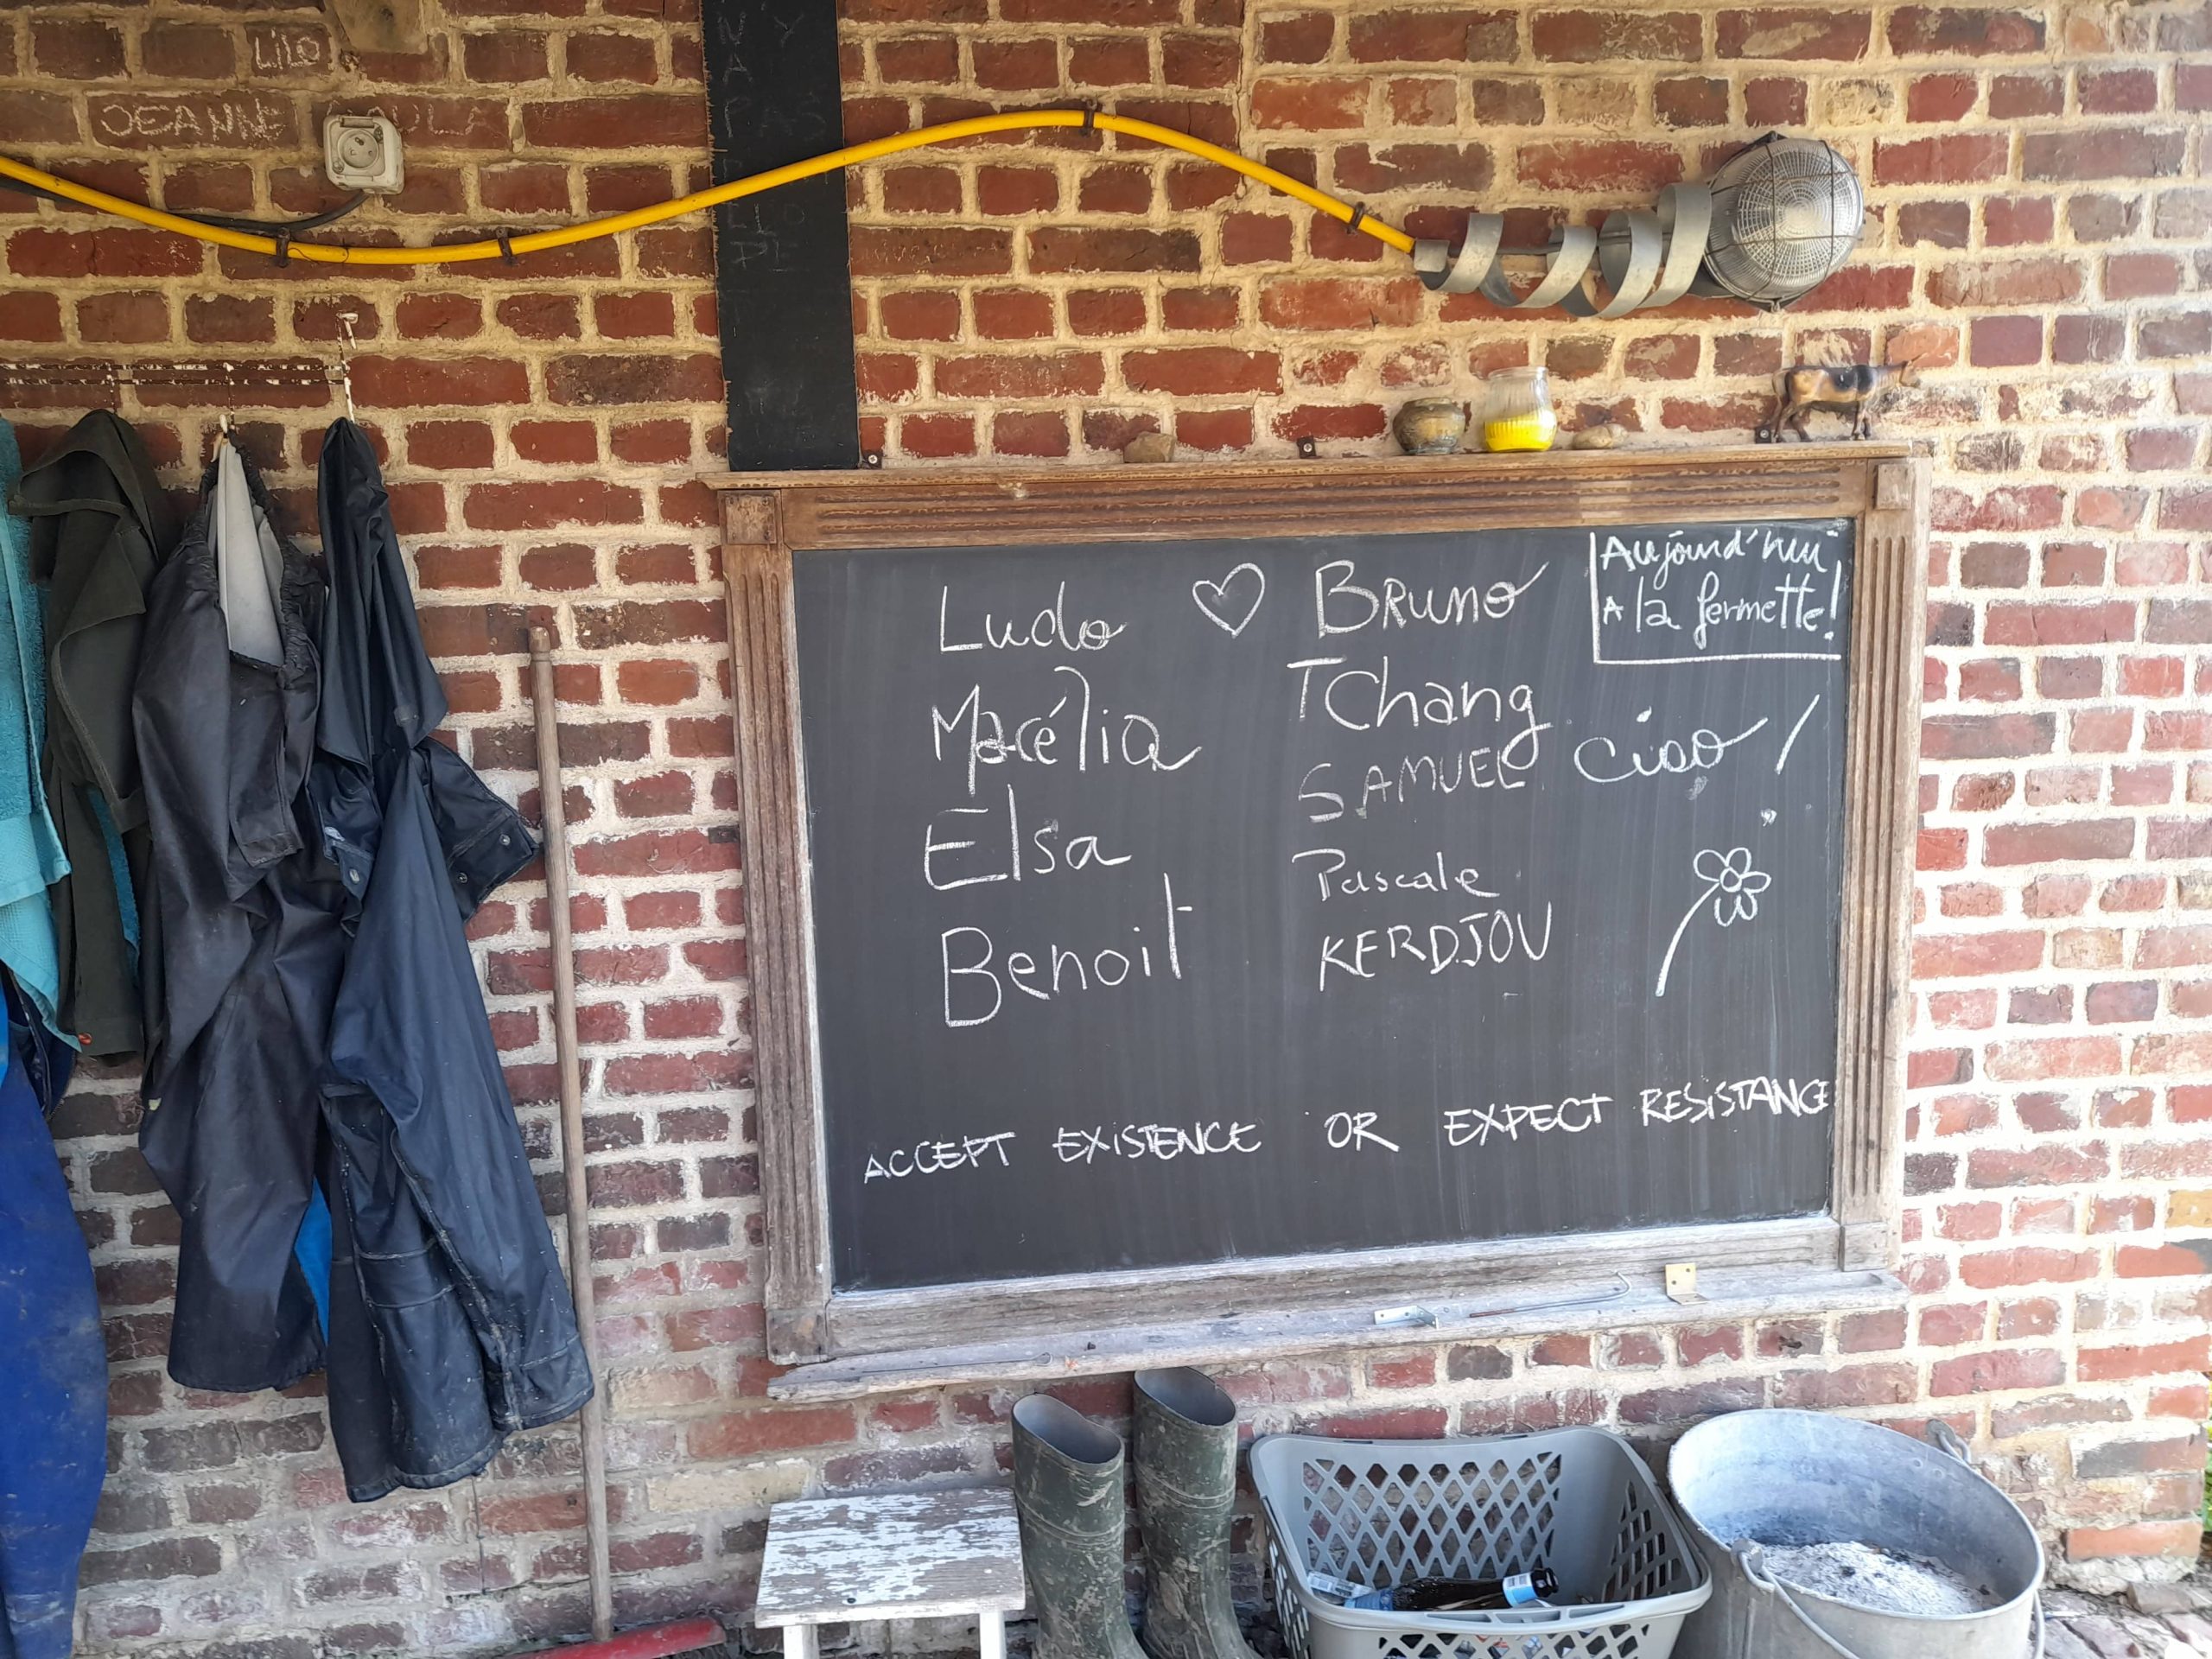 LiLO
JEANNE
Ludo
Macélia
Elsa
Benoit
BRUNO
TChang
SAMUEL
Pascale
KERDJOU
Aujourd'hui
A la fermette!
ciao !
ACCEPT EXiSTENCE OR EXPECT RESiSTANCE